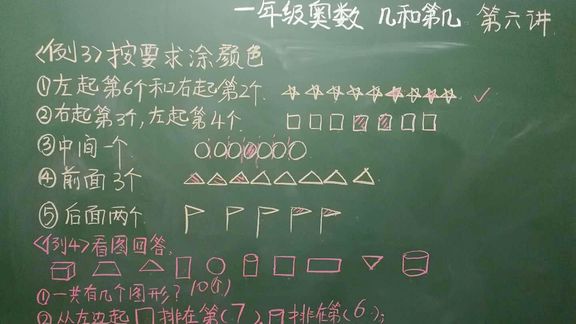 一年级奥数 几和第几 第六讲
<例3>按要求涂颜色
①左起第6个和右起第2个.
②右起第3个,左起第4个.
③中间一个.
④前面3个
⑤后面两个.
<例4>看图回答.
①一共有几个图形? 10(个)
②从左边起□排在第(7),▯排在第(6);